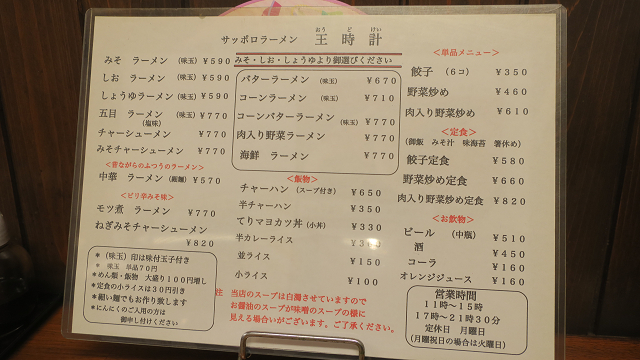 サッポロラーメン 王時計
おうどけい
みそ ラーメン (味玉) ¥590
しお ラーメン (味玉) ¥590
しょうゆラーメン (味玉) ¥590
五目 ラーメン ¥770
(塩味)
チャーシューメン ¥770
みそチャーシューメン ¥770
<昔ながらのふつうのラーメン>
中華 ラーメン (細麺) ¥570
<ピリ辛みそ味>
モツ煮 ラーメン ¥770
ねぎみそチャーシューメン
¥820
*(味玉)印は味付玉子付き
* 味玉 単品70円
*めん類・飯物 大盛り100円増し
*定食の小ライスは30円引き
*細い麺でもお作り致します
*にんにくのご入用の方は
御申し付けください
みそ・しお・しょうゆより御選びください
バターラーメン (味玉) ¥670
コーンラーメン (味玉) ¥710
コーンバターラーメン (味玉) ¥770
肉入り野菜ラーメン ¥770
海鮮 ラーメン ¥770
<飯物>
チャーハン (スープ付き) ¥650
半チャーハン ¥350
てりマヨカツ丼 (小丼) ¥330
半カレーライス
並ライス ¥150
小ライス ¥100
注 当店のスープは白濁させていますので
お醤油のスープが味噌のスープの様に
見える場合がございます。ご了承ください。
<単品メニュー>
餃子 (6コ) ¥350
野菜炒め ¥460
肉入り野菜炒め ¥610
<定食>
(御飯 みそ汁 味海苔 箸休め)
餃子定食 ¥580
野菜炒め定食 ¥660
肉入り野菜炒め定食 ¥820
<お飲物>
ビール (中瓶) ¥510
酒 ¥450
コーラ ¥160
オレンジジュース ¥160
営業時間
11時~15時
17時~21時30分
定休日 月曜日
(月曜祝日の場合は火曜日)